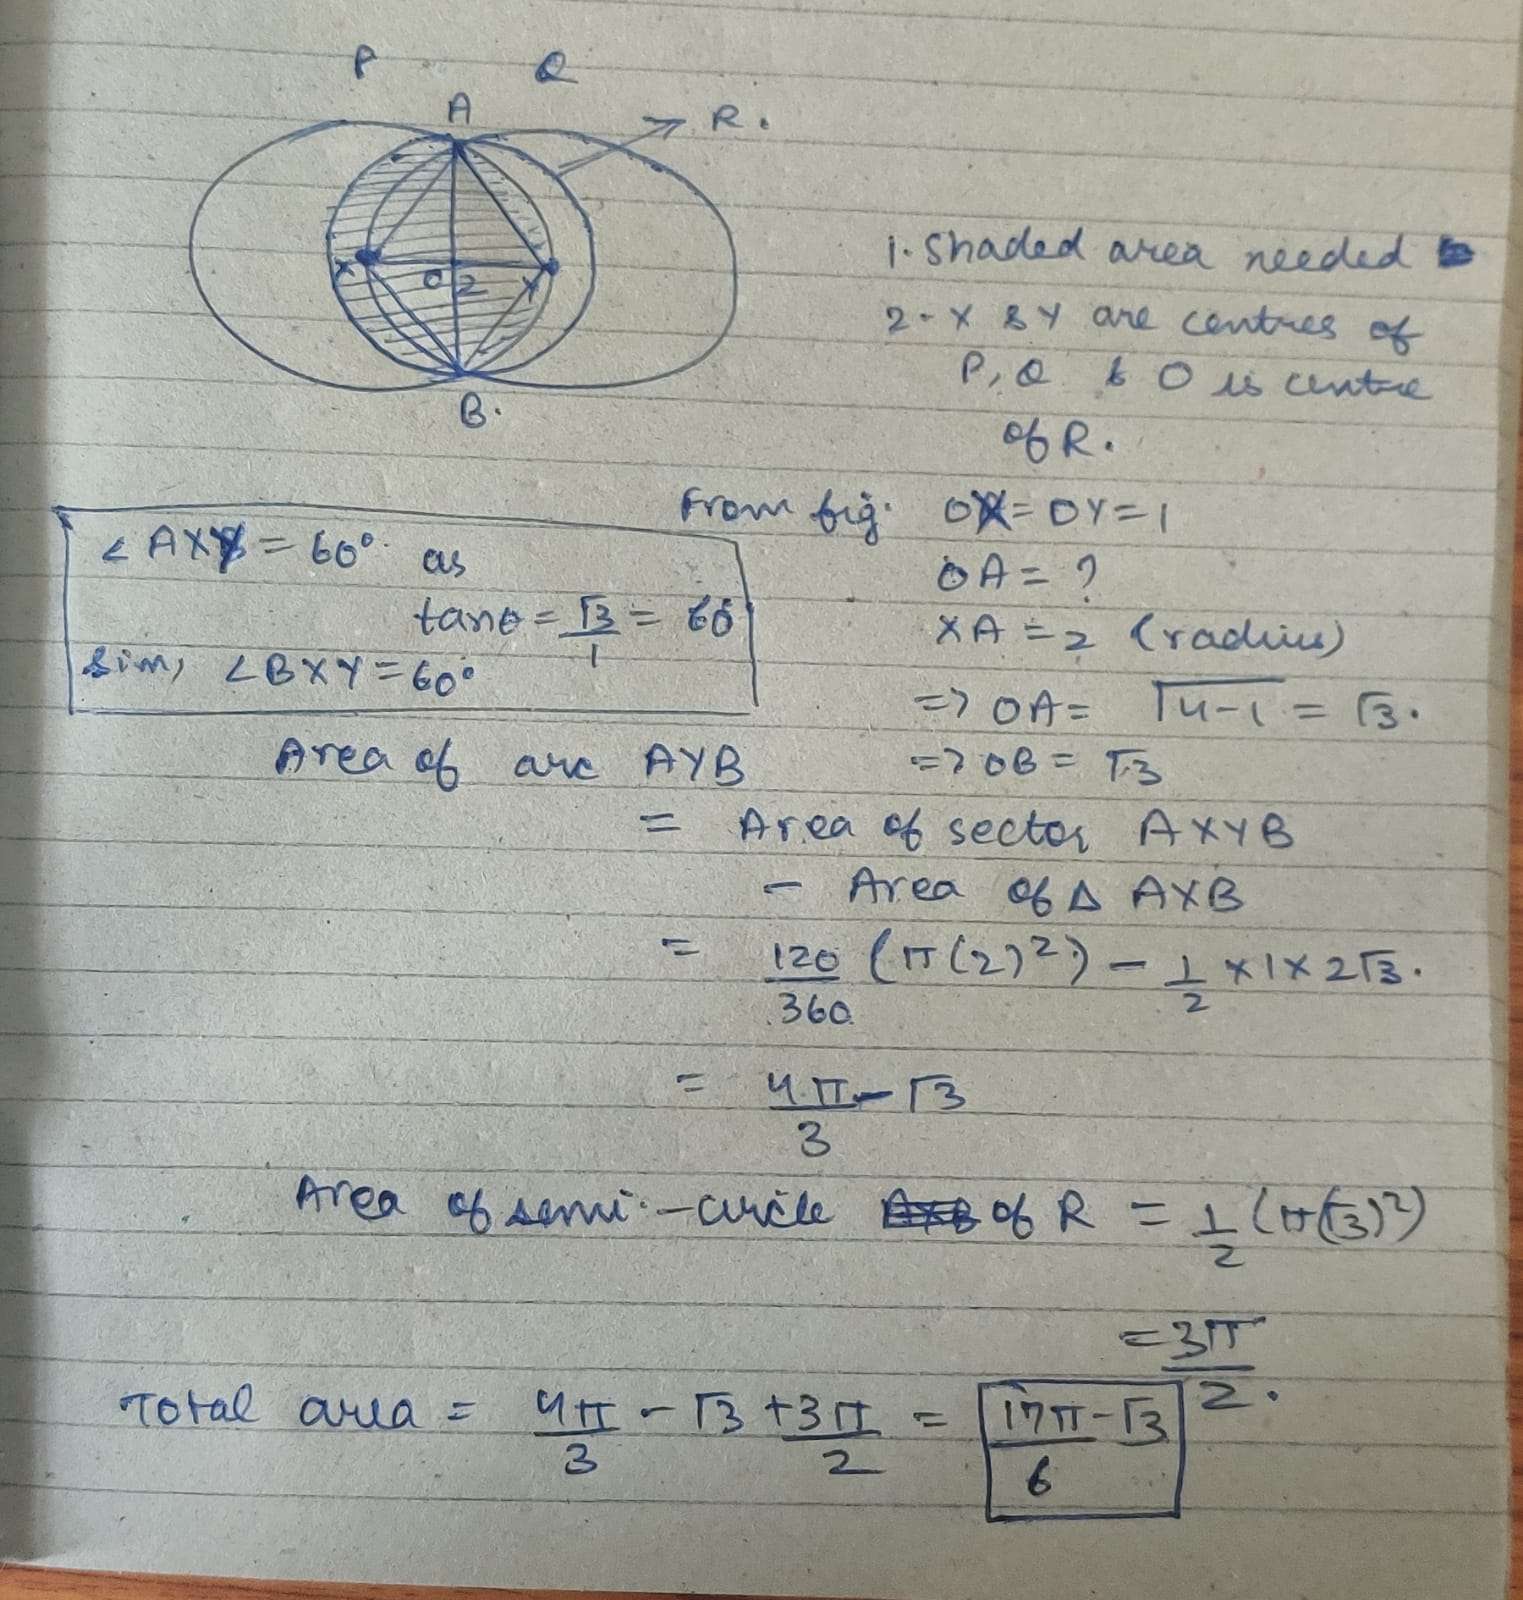 P Q
A
R.
X O 2 Y
B.
1. Shaded area needed
2- X & Y are centres of
P, Q & O is centre
of R.
From fig. OX = OY = 1
∠AXY = 60° as
OA = ?
tanθ = √3/1 = 60
XA = 2 (radius)
sim, ∠BXY = 60°
=> OA = √4-1 = √3.
Area of arc AYB
=> OB = √3
= Area of sector AXYB
- Area of Δ AXB
= 120/360 (π(2)²) - 1/2 × 1 × 2√3.
= 4π/3 - √3
Area of semi-circle of R = 1/2 (π(√3)²)
= 3π/2.
Total area = 4π/3 - √3 + 3π/2 = 17π/6 - √3